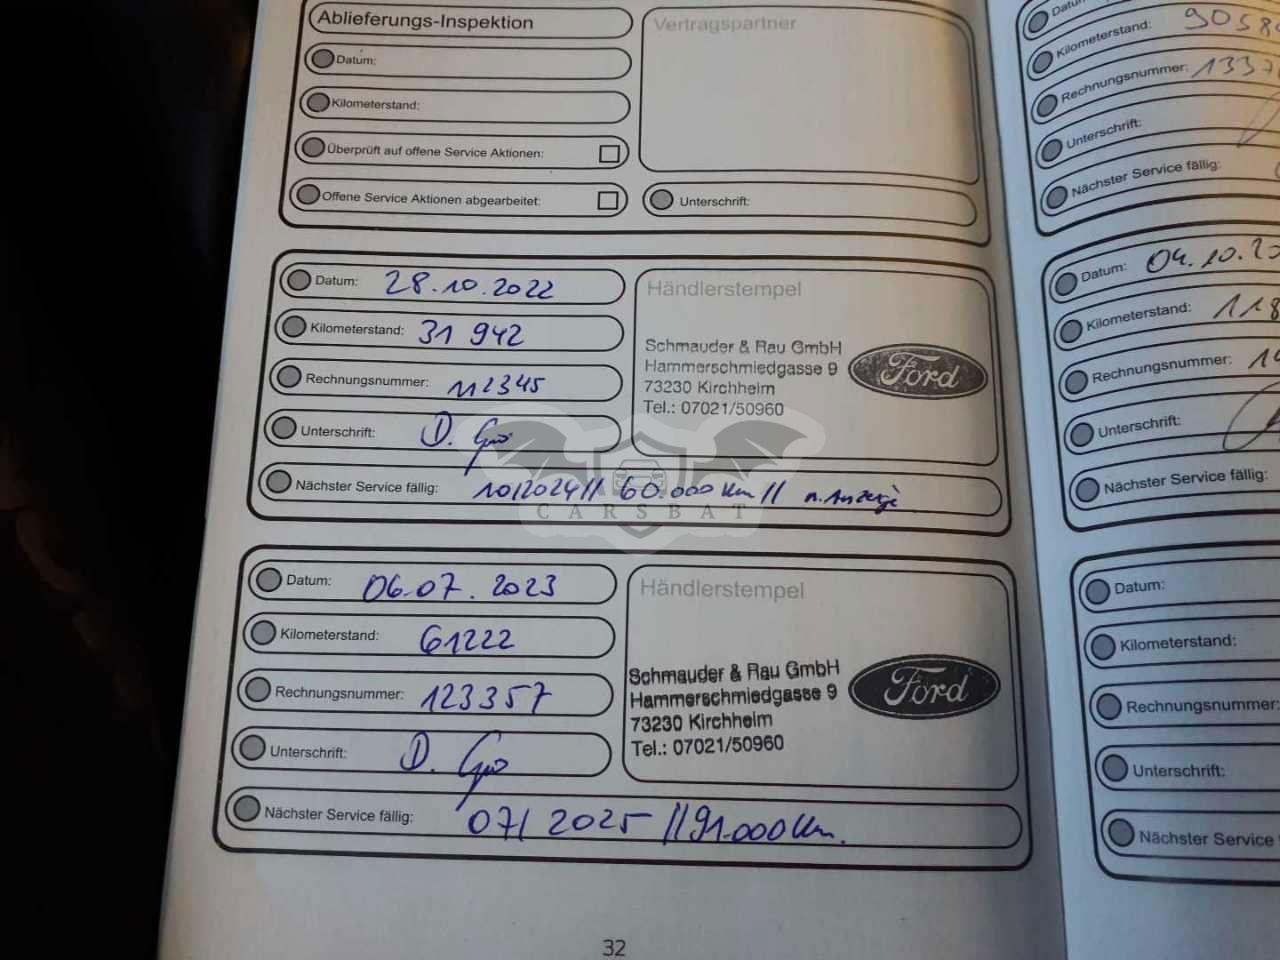 Ablieferungs-Inspektion
Datum:
Kilometerstand:
Überprüft auf offene Service Aktionen:
Offene Service Aktionen abgearbeitet:
Vertragspartner
Unterschrift:
Datum: 28.10.2022
Kilometerstand: 31 942
Rechnungsnummer: 112345
Unterschrift: D.
Nächster Service fällig: 10/2024// 60.000 km// n. Anzeige
Händlerstempel
Schmauder & Rau GmbH
Hammerschmiedgasse 9
73230 Kirchheim
Tel.: 07021/50960
Ford
CARSBAT
Datum: 06.07.2023
Kilometerstand: 61222
Rechnungsnummer: 123357
Unterschrift: D.
Nächster Service fällig: 07/2025//91.000 km.
Händlerstempel
Schmauder & Rau GmbH
Hammerschmiedgasse 9
73230 Kirchheim
Tel.: 07021/50960
Ford
32
Datum:
Kilometerstand: 9058
Rechnungsnummer: 1337
Unterschrift:
Nächster Service fällig:
Datum: 04.10.20
Kilometerstand: 118
Rechnungsnummer: 14
Unterschrift:
Nächster Service fällig:
Datum:
Kilometerstand:
Rechnungsnummer:
Unterschrift:
Nächster Service